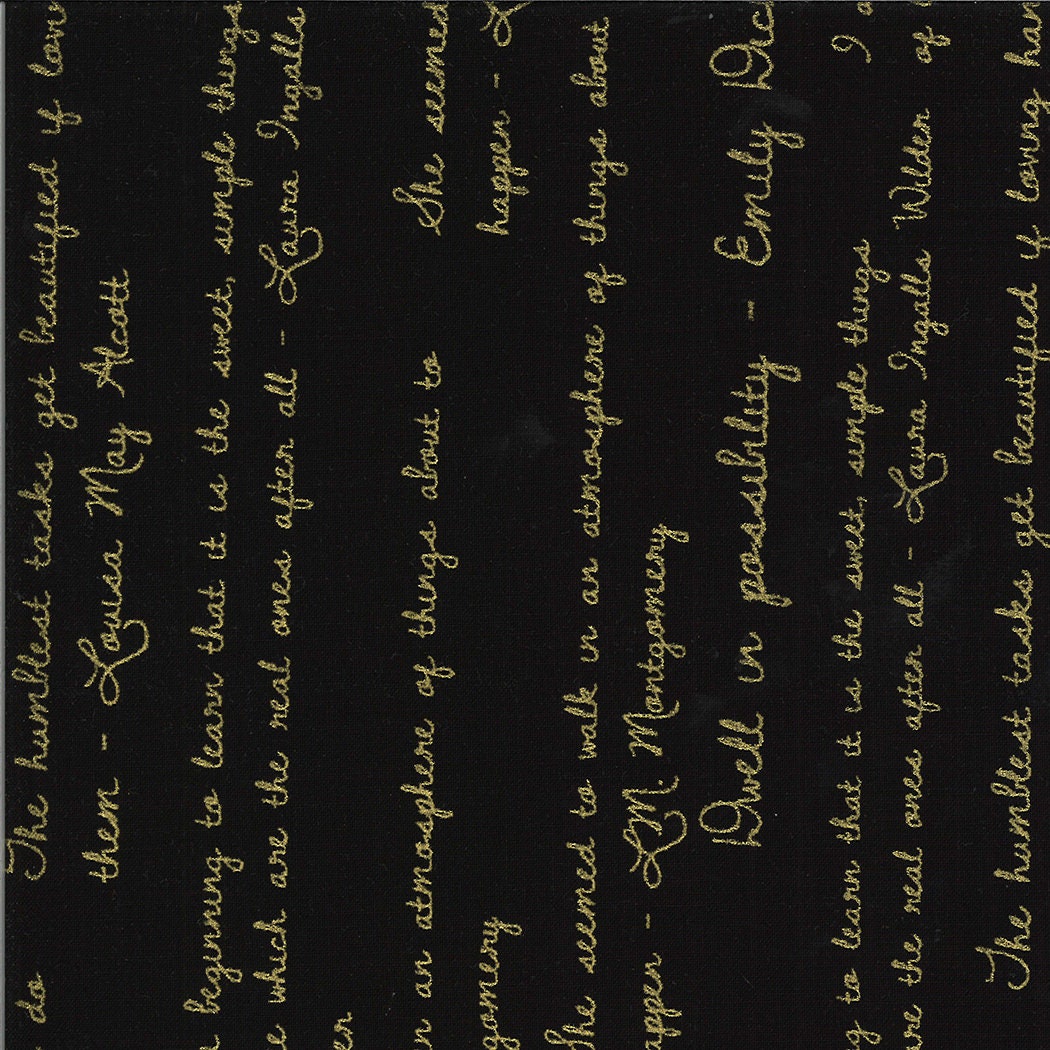 do The humblest tasks get beautified if lov
them - Louisa May Alcott
beginning to learn that it is the sweet, simple things
which are the real ones after all - Laura Ingalls
er
n an atmosphere of things about to She seemed
gomery happen -
She seemed to walk in an atmosphere of things about
appen - L M. Montgomery
Dwell in possibility - Emily Dic
g to learn that it is the sweet, simple things I a
re the real ones after all - Laura Ingalls Wilder of
The humblest tasks get beautified if loving han